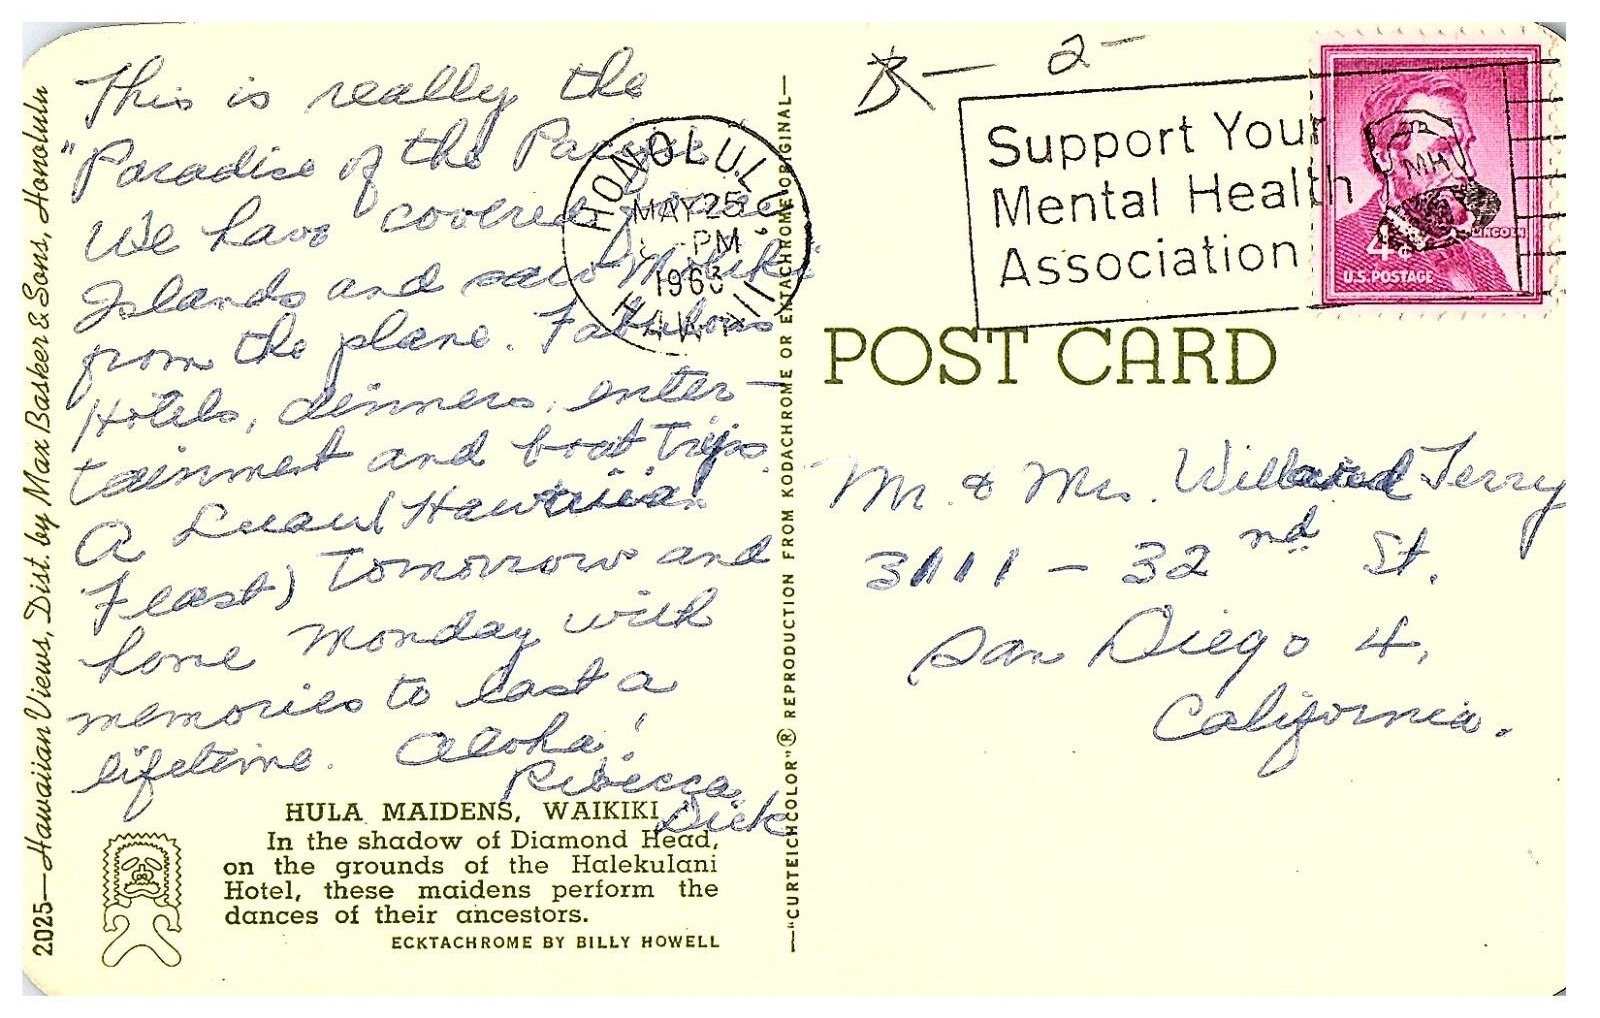 This is really the
"Paradise of the Pacific"
We have covered
Islands and saw Molokai
from the plane. Fabulous
Hotels, dinners, enter-
tainment and boat trips.
A Luau (Hawaiian
Feast) tomorrow and
home Monday with
memories to last a
lifetime. Aloha!
Rebecca
Dick
HULA MAIDENS, WAIKIKI
In the shadow of Diamond Head,
on the grounds of the Halekulani
Hotel, these maidens perform the
dances of their ancestors.
ECKTACHROME BY BILLY HOWELL
2025—Hawaiian Views, Dist. by Max Basker & Sons, Honolulu
—"CURTEICHCOLOR"® REPRODUCTION FROM KODACHROME OR EKTACHROME ORIGINAL—
HONOLULU
MAY 25
PM
1963
HAWAII
B— 2—
Support Your
Mental Health
Association
MH
LINCOLN
4¢
U.S. POSTAGE
POST CARD
Mr. & Mrs. Willard Terry
3111 – 32nd St.
San Diego 4,
California.